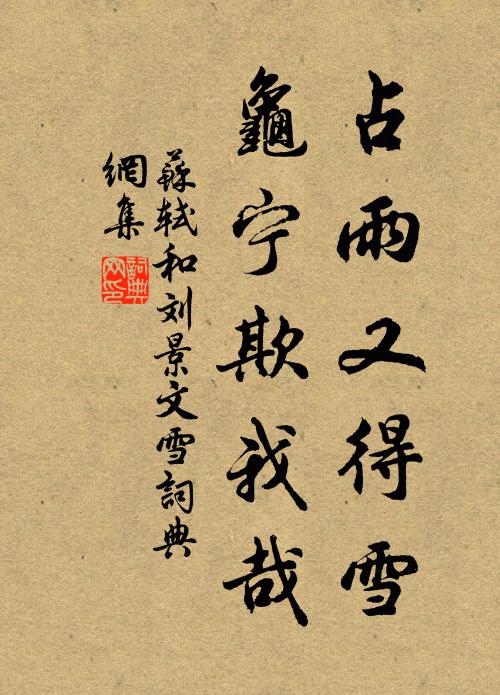 占雨又得雪
龜宁欺我哉
蘇軾和刘景文雪詞典
網集
詞典
网印